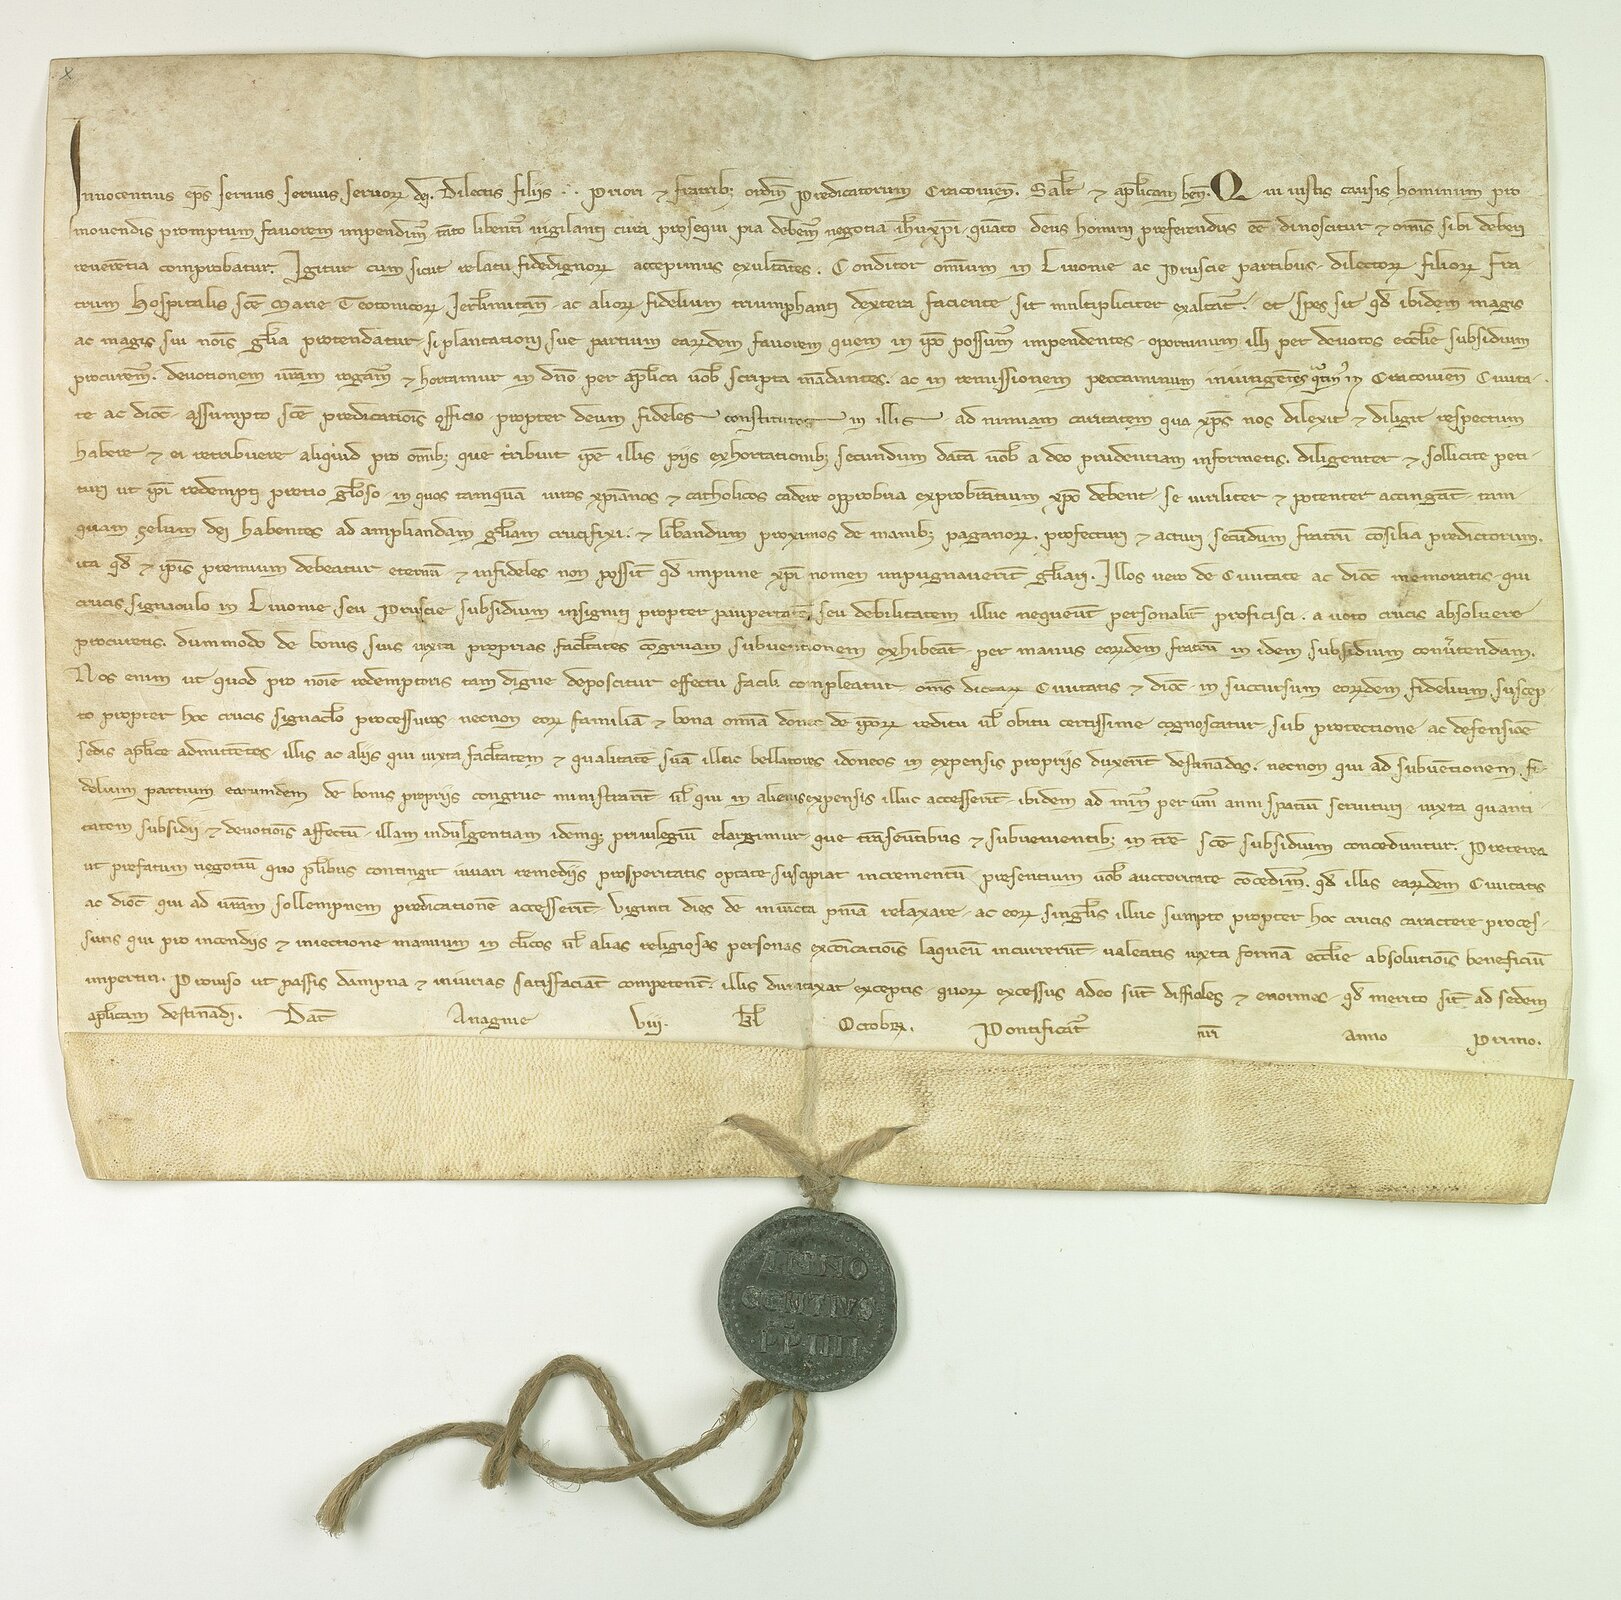 Innocentius eps seruus seruus seruoꝝ dej. Dilectis filiis ∴ Priori ⁊ fratribꝫ ordinͥ Predicatorum Cracovien̄. Salt̄ ⁊ apl̄icam ben̄. Qui iustis causis hominum pro
movendis promptum favorem impendim᷒ tāto libentī vigilanti cura prosequi pia debem᷒ negotia ih̄uxp̄i quāto deus homini preferendus eē dinoscitur ⁊ omīs sibi deberi
reuerētia comprobatur. Igitur cum sicut relatu fidedignoꝝ accepimus exultātes. Conditor omīum in Liuonie ac Pruscie partibus dilectoꝝ filioꝝ fra-
trum hospitalis scē Marie Teotonicoꝝ Ierl̄imitan̄ ac alioꝝ fidelium triumphanti dextera faciente sit multipliciter exaltat᷒. et spes sit qd̄ ibidem magis
ac magis sui noīs gl̄ia protendatur si plantationi sue partium earūdem favorem quem in ip̄o possum᷒ impendentes oportunum illi per deuotos eccl̄ie subsidium
procurem᷒. deuotionem ur̄am rogam᷒ ⁊ hortamur in dn̄o per apl̄ica uob̄ scripta mādantes. ac in remissionem peccaminum iniungētes qtin᷒ in Cracovien̄ Ciuita-
te ac dioc̄ assumpto scē predicatiōis officio propter deum fideles constitutos in illis ad nimiam caritatem qua xp̄s nos dilexit ⁊ diligit respectum
habere ⁊ ei retribuere aliquid pro omībꝫ que tribuit ip̄e illis piis exhortationibꝫ secundum datā uob̄ a deo prudentiam informetis. diligenter ⁊ sollicite peti-
turi ut ip̄i redempti pretio gl̄oso in quos tamquā uiros xp̄ianos ⁊ catholicos cadere opprobria exprobrātium xp̄o debent se uiriliter ⁊ potenter accingāt tam
quam zelum dei habentes ad ampliandam gl̄iam crucifixi. ⁊ lib̄andum proximos de manibꝫ paganoꝝ. profecturi ⁊ acturi secūdum fratrū cōsilia predictorum.
ita qd̄ ⁊ ip̄is premium debeatur eternū ⁊ infideles non possīt qd̄ impune xp̄i nomen impugnauerīt gl̄iari. Illos uero de Ciuitate ac dioc̄ memoratis qui
crucis signaculo in Liuonie seu Pruscie subsidium insigniti propter paupertatē seu debilitatem illuc nequeūt personalit̄ proficisci. a uoto crucis absoluere
procuretis. dummodo de bonis suis iuxta proprias facl̄tates cōgruam subuentionem exhibeāt per manus eorūdem fratrū in idem subsidium conūtendam.
Nos enim ut quod pro noīe redemptoris tam digne deposcitur effectu facili compleatur omīs dictaꝝ Ciuitatis ⁊ dioc̄ in succursum eorūdem fidelium suscep-
to propter hoc crucis signacl̄o processuros necnon eoꝝ familiā ⁊ bona omīa donec de ip̄oꝝ reditu ul̄ obitu certissime cognoscatur sub protectione ac defensiōe
sedis apl̄ice admittētes illis ac aliis qui iuxta facl̄tatem ⁊ qualitatē suā illuc bellatores idoneos in expensis propriis duxerīt destinādos. necnon qui ad subuētionem fi-
delium partium earumdem de bonis propriis congrue ministrarīt ul̄ qui in alienis expensis illuc accesserīt ibidem ad min᷒ per unī anni spatiū seruituri iuxta quanti-
tatem subsidij ⁊ deuotiōis affectū illam indulgentiam idemqꝫ priuilegiū elargimur que trāseūtibus ⁊ subuenientibꝫ in tr̄e scē subsidium conceduntur. Preterea
ut prefatum negotiū quo pl̄ibus contingit iuuari remedijs prosperitatis optate suscipiat incrementū presentium uob̄ auctoritate cōcedim᷒. qd̄ illis earūdem Ciuitatis
ac dioc̄ qui ad ur̄am sollempnem predicationē accesserīt uiginti dies de iniūcta pn̄ia relaxare ac eoꝝ singl̄is illuc sumpto propter hoc crucis caractere proces-
suris qui pro incendijs ⁊ iniectione manuum in cl̄icos ul̄ alias religiosas personas excōicatiōis laqueū incurrerūt ualeatis iuxta formā eccl̄ie absolutiōis beneficiū
impertiri. Prouiso ut passis dampna ⁊ iniurias satisfaciāt competent̄ illis dumtaxat exceptis quoꝝ excessus adeo sūt difficiles ⁊ enormes qd̄ merito sūt ad sedem
apl̄icam destinādi. Dat̄ Anagnie viij. kl̄ Octobꝝ. Pontificat᷒ nr̄i anno Primo.
INNO
CENTIVS
PP IIII